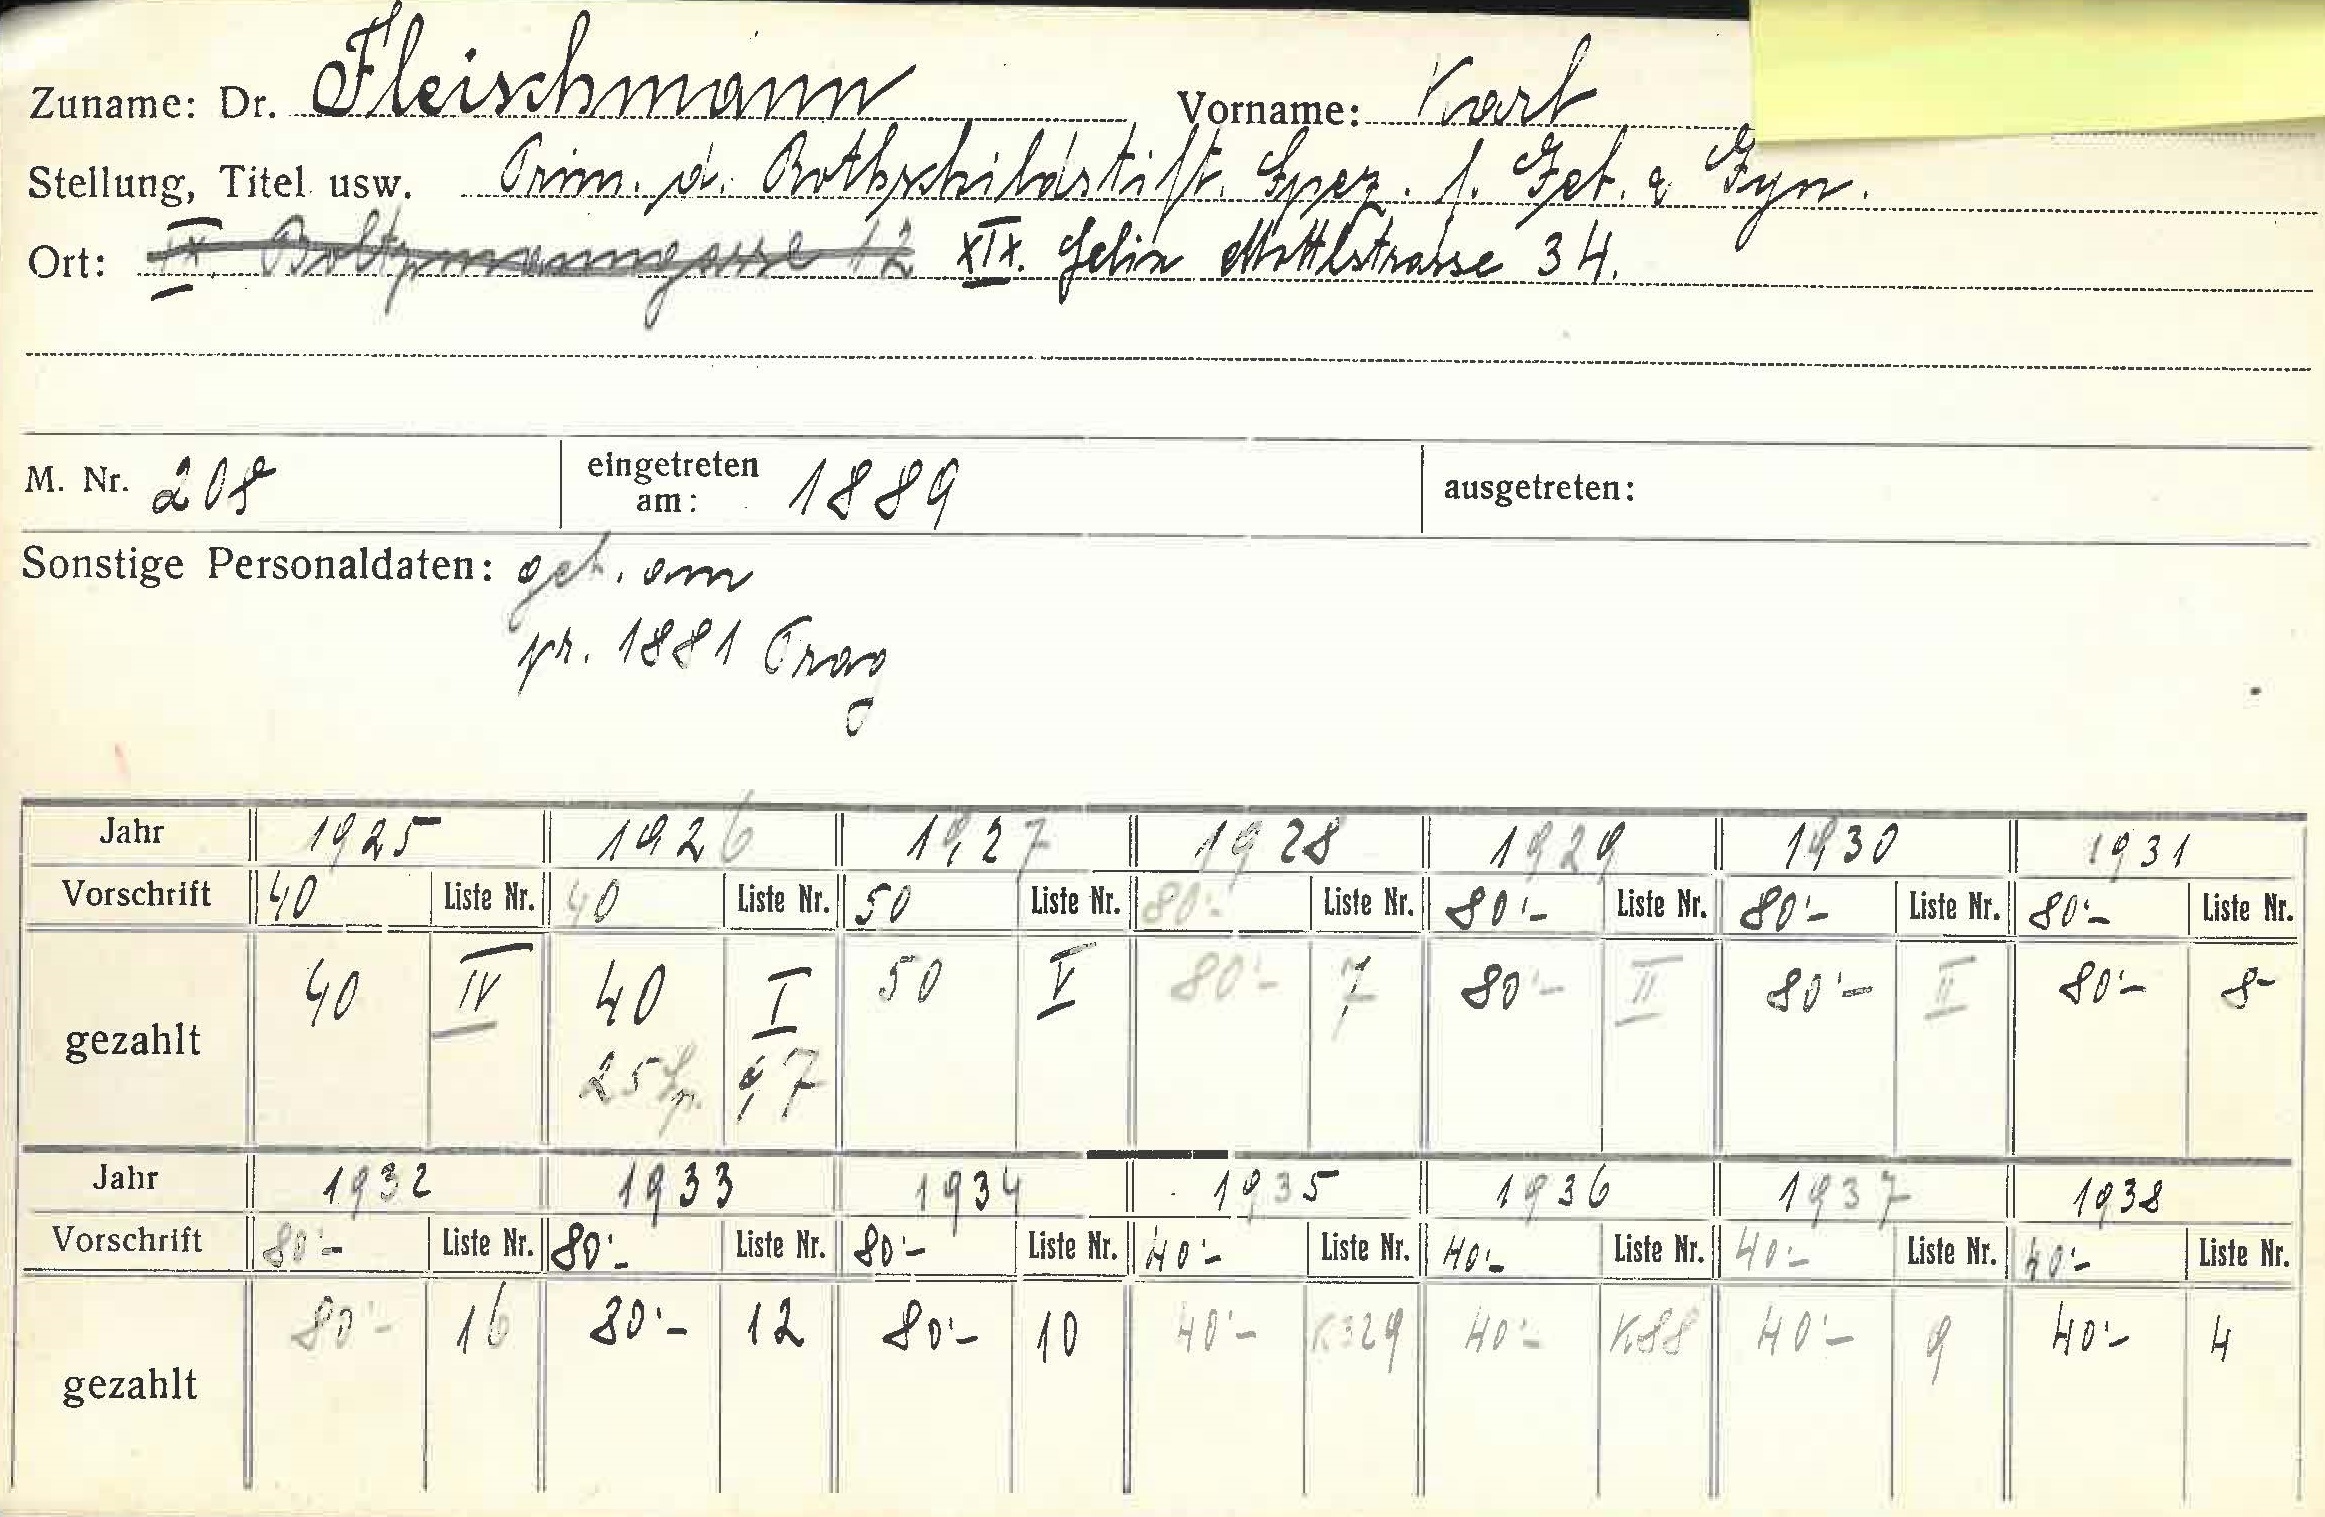 Zuname: Dr. Fleischmann Vorname: Karl
Stellung, Titel usw. Prim. d. Rothschildstift. Spez. f. Geb. & Gyn.
Ort: IX. Boltzmanngasse 12 XIX. Felix Mottlstrasse 34.
M. Nr. 208 eingetreten am: 1889 ausgetreten:
Sonstige Personaldaten: geb. am
pr. 1881 Prag
Jahr 1925 1926 1927 1928 1929 1930 1931
Vorschrift 40 Liste Nr. 40 Liste Nr. 50 Liste Nr. 80.- Liste Nr. 80.- Liste Nr. 80.- Liste Nr. 80.- Liste Nr.
gezahlt 40 IV 40 I 50 V 80.- 7 80.- II 80.- II 80.- 8-
25 Sp. 97
Jahr 1932 1933 1934 1935 1936 1937 1938
Vorschrift 80.- Liste Nr. 80.- Liste Nr. 80.- Liste Nr. 40.- Liste Nr. 40.- Liste Nr. 40.- Liste Nr. 40.- Liste Nr.
gezahlt 80.- 16 80.- 12 80.- 10 40.- K329 40.- K88 40.- 9 40.- 4